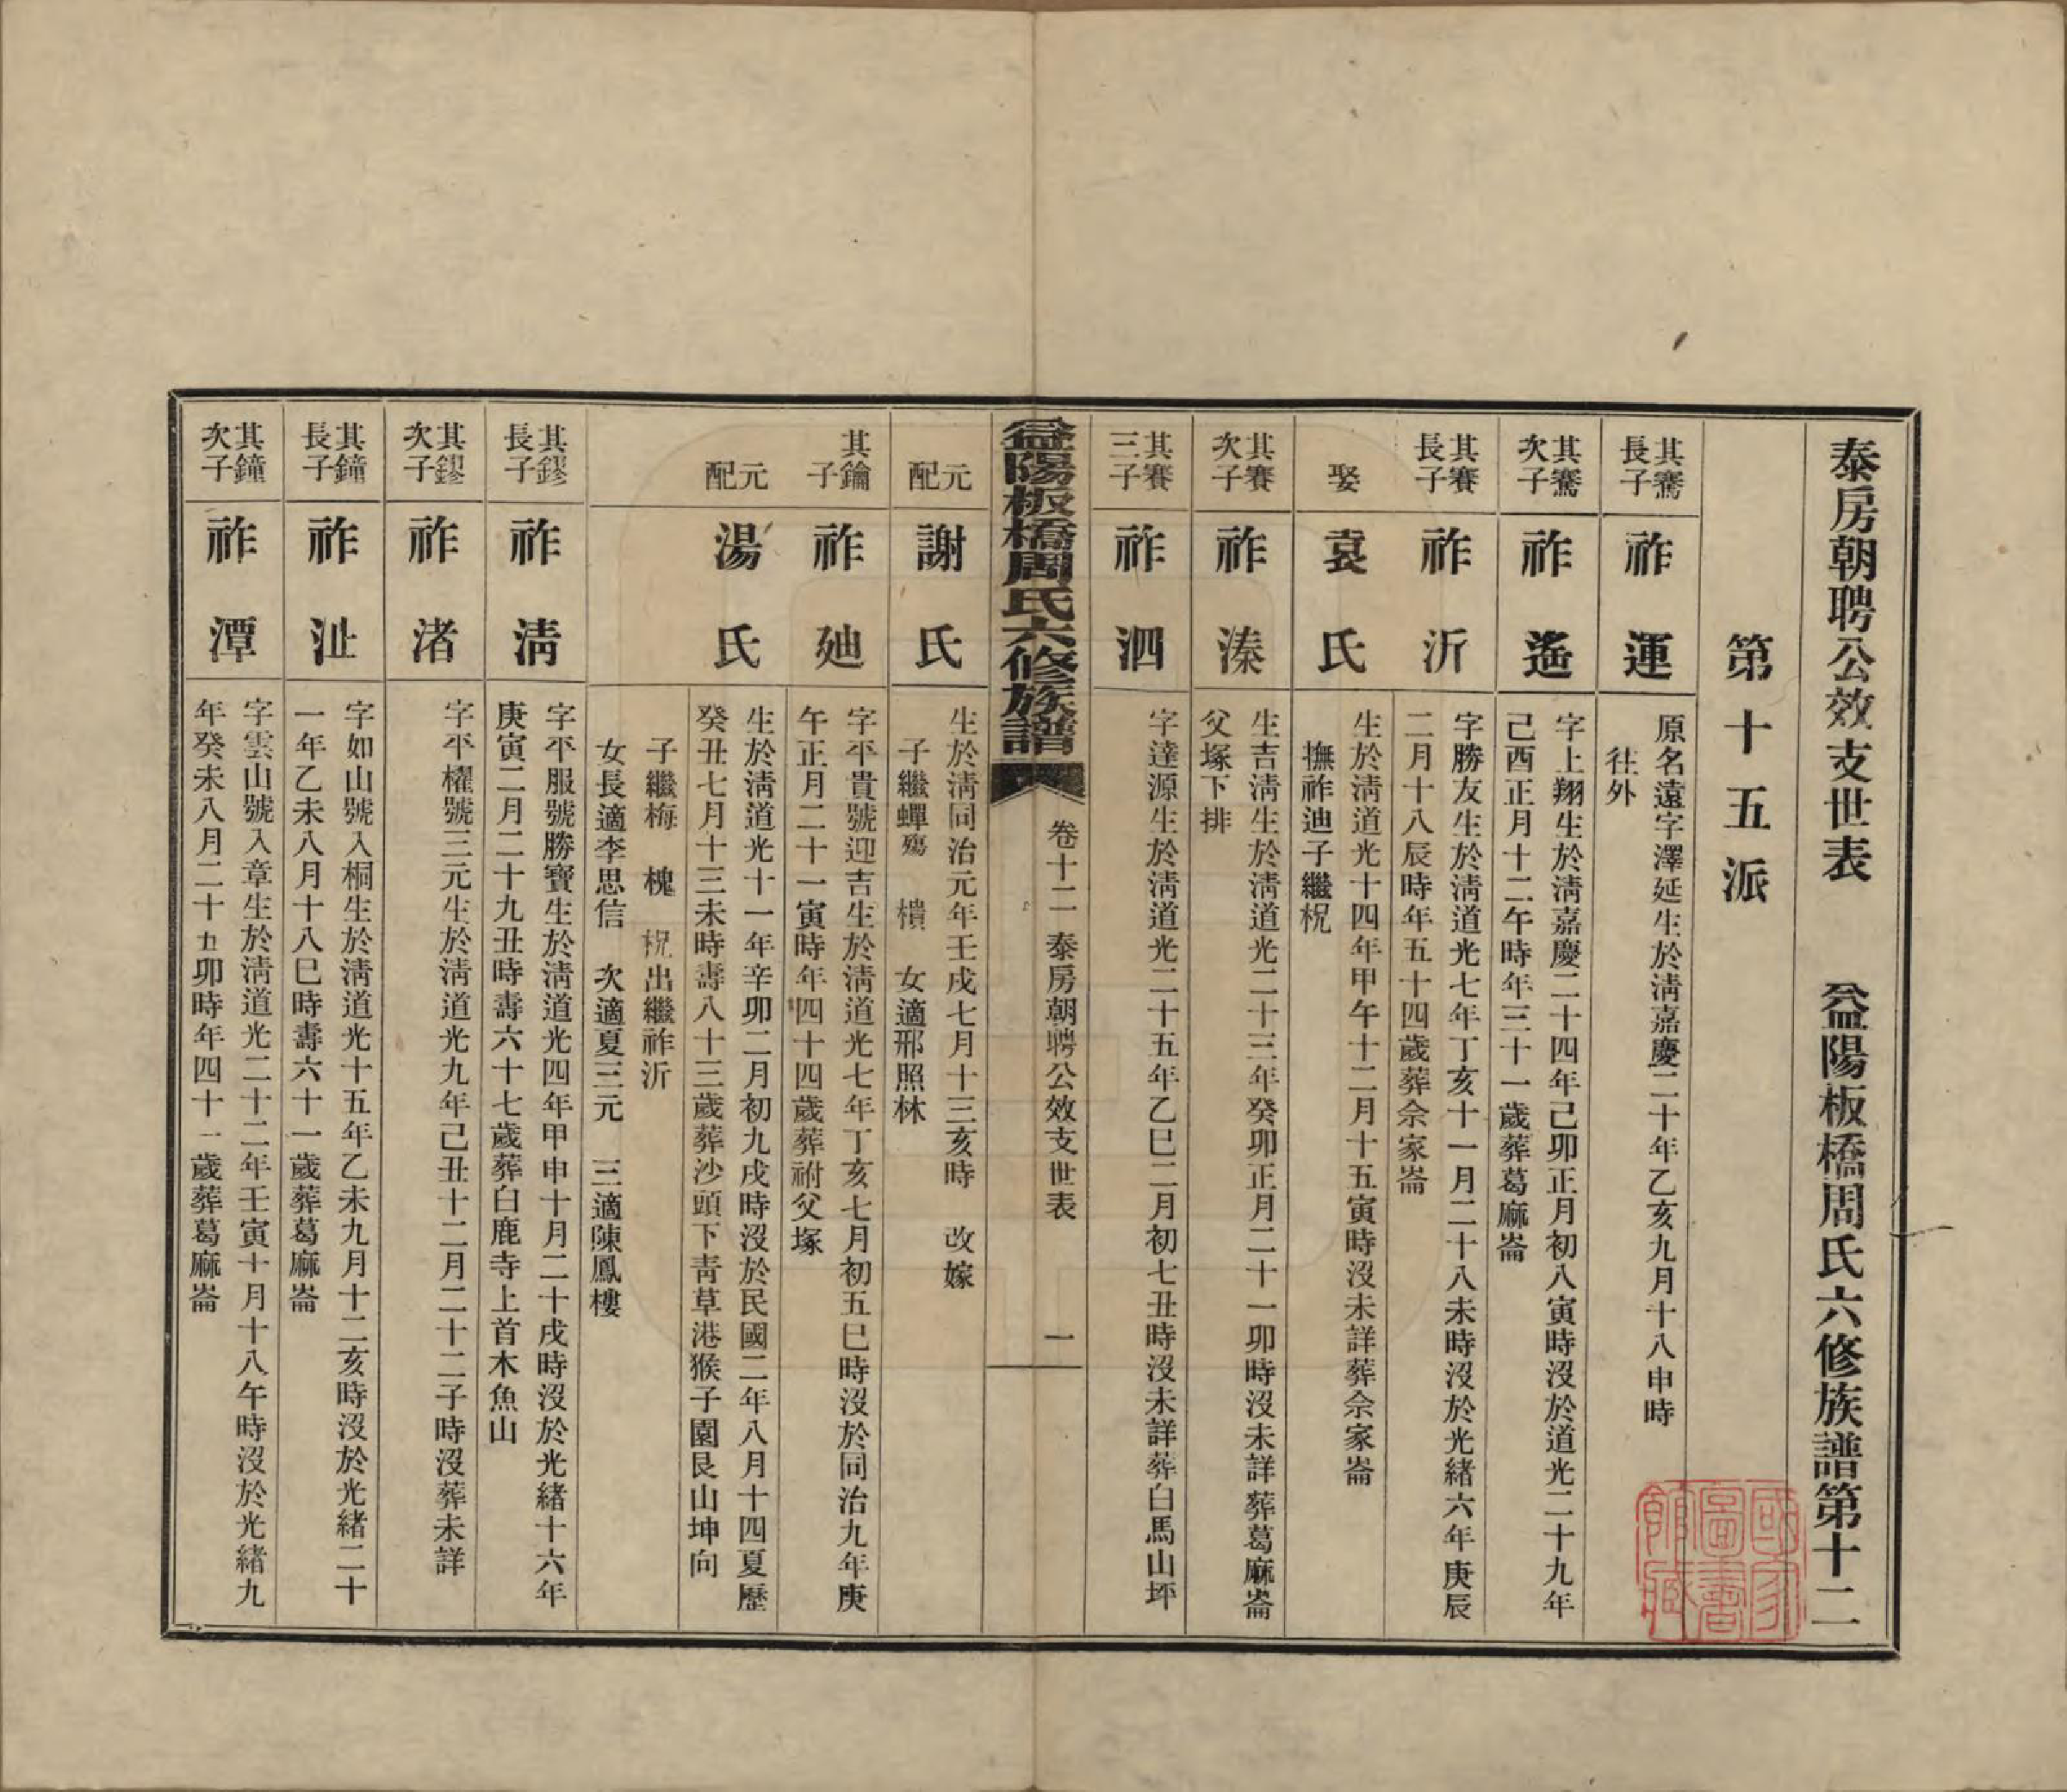 泰房朝聘公效支世表　益陽板橋周氏六修族譜第十二
第十五派
其鶱長子
祚運
原名遠字澤延生於淸嘉慶二十年乙亥九月十八申時
往外
其鶱次子
祚遙
字上翔生於淸嘉慶二十四年己卯正月初八寅時沒於道光二十九年
己酉正月十二午時年三十一歲葬葛麻崙
其賽長子
祚沂
字勝友生於淸道光七年丁亥十一月二十八未時沒於光緒六年庚辰
二月十八辰時年五十四歲葬佘家崙
娶
袁氏
生於淸道光十四年甲午十二月十五寅時沒未詳葬佘家崙
撫祚迪子繼柷
其賽次子
祚溱
生吉淸生於淸道光二十三年癸卯正月二十一卯時沒未詳葬葛麻崙
父塚下排
其賽三子
祚泗
字達源生於淸道光二十五年乙巳二月初七丑時沒未詳葬白馬山坪
益陽板橋周氏六修族譜
卷十二　泰房朝聘公效支世表
一
元配
謝氏
生於淸同治元年壬戌七月十三亥時　改嫁
子繼蟬殤　橨　女適邢照林
其鑰子
祚廸
字平貴號迎吉生於淸道光七年丁亥七月初五巳時沒於同治九年庚
午正月二十一寅時年四十四歲葬祔父塚
元配
湯氏
生於淸道光十一年辛卯二月初九戌時沒於民國二年八月十四夏歷
癸丑七月十三未時壽八十三歲葬沙頭下靑草港猴子園艮山坤向
子繼梅　槐　柷出繼祚沂
女長適李思信　次適夏三元　三適陳鳳樓
其鏐長子
祚淸
字平服號勝寶生於淸道光四年甲申十月二十戌時沒於光緒十六年
庚寅二月二十九丑時壽六十七歲葬白鹿寺上首木魚山
其鏐次子
祚渚
字平權號三元生於淸道光九年己丑十二月二十二子時沒葬未詳
其鐘長子
祚沚
字如山號入桐生於淸道光十五年乙未九月十二亥時沒於光緒二十
一年乙未八月十八巳時壽六十一歲葬葛麻崙
其鐘次子
祚潭
字雲山號入章生於淸道光二十二年壬寅十月十八午時沒於光緒九
年癸未八月二十五卯時年四十一歲葬葛麻崙
國家圖書館藏